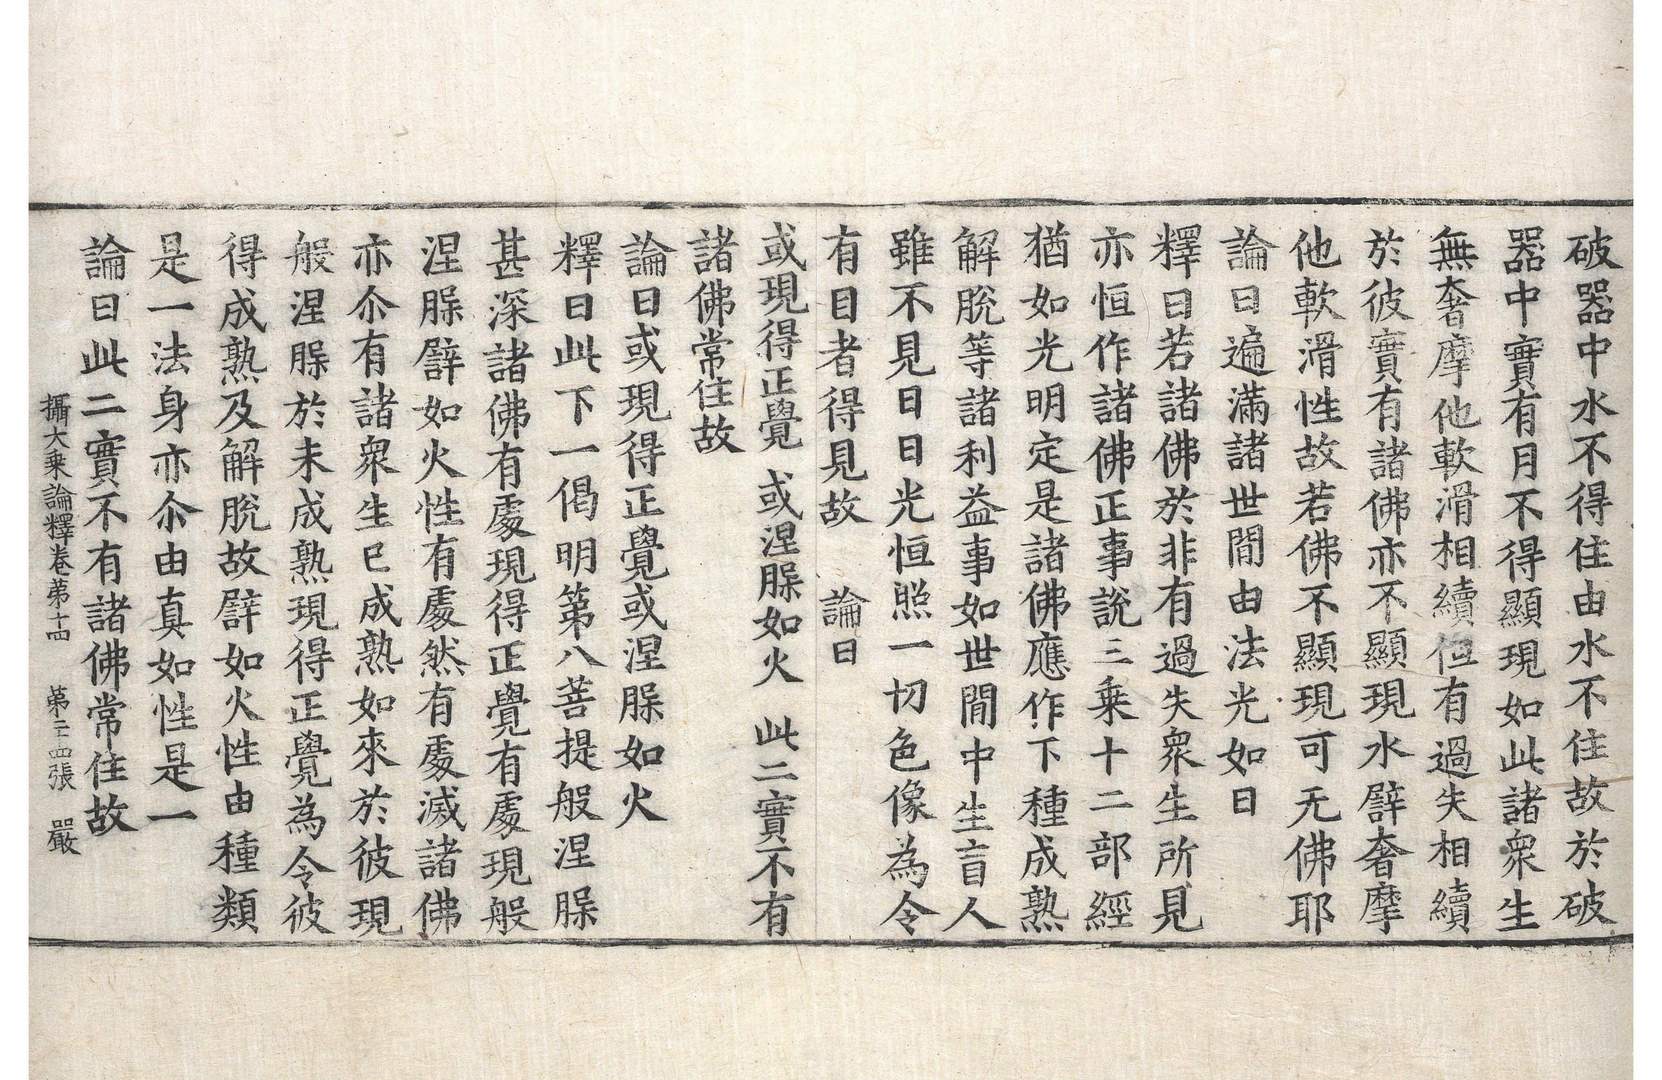 破器中水不得住由水不住故於破
器中實有月不得顯現如此諸衆生
無奢摩他軟滑相續但有過失相續
於彼實有諸佛亦不顯現水譬奢摩
他軟滑性故若佛不顯現可无佛耶
論曰遍滿諸世間由法光如日
釋曰若諸佛於非有過失衆生所見
亦恒作諸佛正事說三乘十二部經
猶如光明定是諸佛應作下種成熟
解脫等諸利益事如世間中生盲人
雖不見日日光恒照一切色像為令
有目者得見故 論曰
或現得正覺 或涅槃如火 此二實不有
諸佛常住故
論曰或現得正覺或涅槃如火
釋曰此下一偈明第八菩提般涅槃
甚深諸佛有處現得正覺有處現般
涅槃譬如火性有處然有處滅諸佛
亦尒有諸衆生已成熟如來於彼現
般涅槃於未成熟現得正覺為令彼
得成熟及解脫故譬如火性由種類
是一法身亦尒由真如性是一
論曰此二實不有諸佛常住故
攝大乘論釋卷第十四 第二十四張 嚴